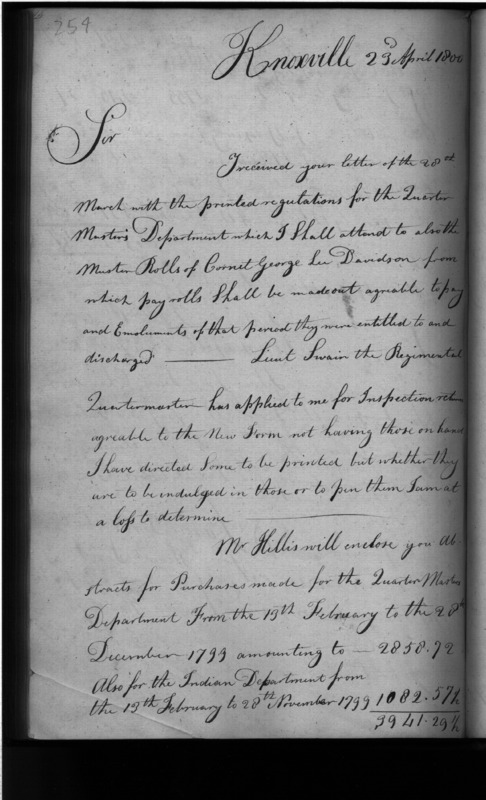 259
Knoxville 23d April 1800
Sir
I received your letter of the 28th
March with the printed regulations for the Quarter
Master's Department which I Shall attend to also the
Muster Rolls of Cornet George Lee Davidson from
which pay rolls Shall be made out agreable to pay
and Emoluments of that period they were entitled to and
discharged ——— Lieut Swain the Regimental
Quartermaster has applied to me for Inspection return
agreable to the New Form not having those on hand
I have directed Some to be printed but whether they
are to be indulged in those or to pen them I am at
a loss to determine ———
Mr Hillis will enclose you Ab-
stracts for Purchases made for the Quarter Masters
Department From the 19th February to the 28th
December 1799 amounting to — 2858.72
Also for the Indian Department from
the 19th February to 28th November 1799 1082.57½
3941.29½